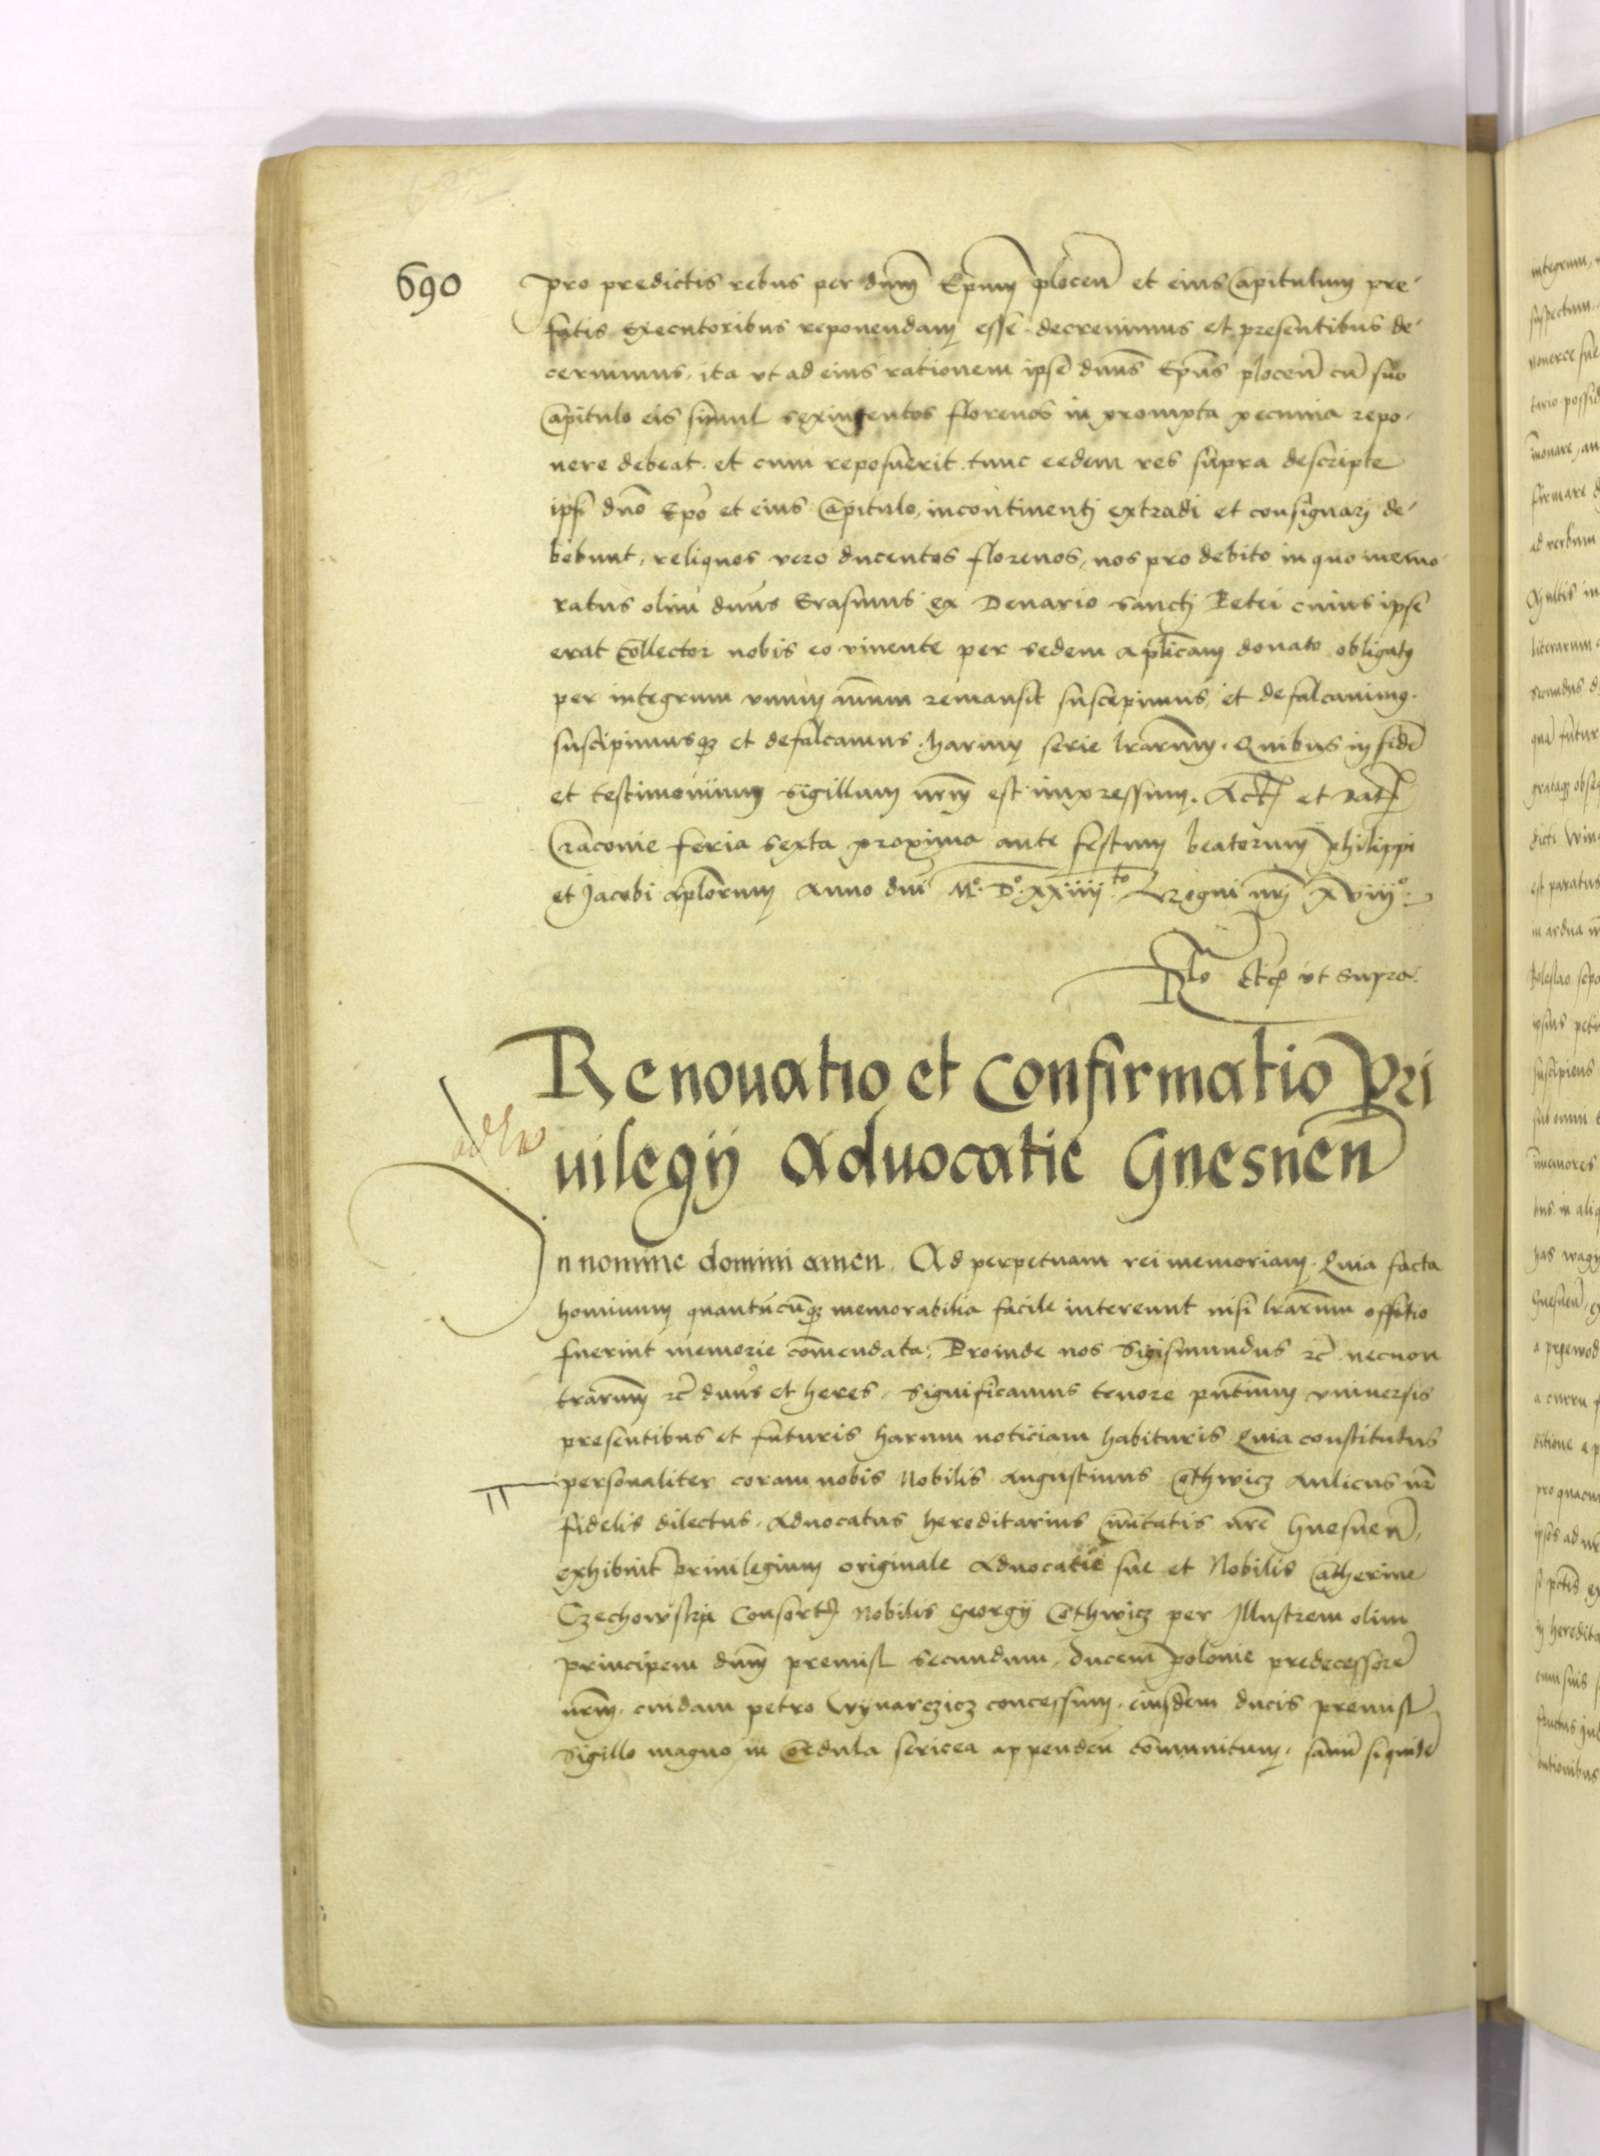 690
pro predictis rebus per dnm̄ Epum̄ plocen̄ et eius Capitulum pre-
fatis executoribus reponendam esse decrevimus et presentibus de-
cernimus, ita vt ad eius rationem ipse dnūs Epūs plocen̄ cū suo
Capitulo eis simul sexingentos florenos in prompta pecunia repo-
nere debeat. et cum reposuerit tunc eedem res supra descripte
ipsi dnō Epō et eius Capitulo, incontinentj extradi et consignarj de-
bebunt, reliquos vero ducentos florenos, nos pro debito in quo memo-
ratus olim dnūs Erasmus ex Denario sanctj Petri cuius ipse
erat Collector nobis eo vivente per sedem aplicam donato obligatꝰ
per integrum vnum annum remansit suscepimus et defalcavimꝰ.
suscipimusqꝫ et defalcamus harum serie lrārum. Quibus in fidē
et testimonium sigillum nrm̄ est impressum. Actꝭ et Datꝭ
Cracovie feria sexta proxima ante festum beatorum philippi
et Jacobi aplorum Anno dnī Mº. Dº. xxiiiito Regni nrj xviijº.
Rlo Etcꝭ vt supra.
Renouatio et Confirmatio Pri
uilegij Aduocatie Gnesnen̄
In nomine domini amen. Ad perpetuam rei memoriam. Quia facta
hominum quantūcūqꝫ memorabilia facile intereunt nisi lrārum offitio
fuerint memorie cōmendata. Proinde nos Sigismundus ꝛc̄ necnon
trārum ꝛc̄ dnūs et heres. Significamus tenore pn̄tium vniversis
presentibus et futuris harum noticiam habituris Quia constitutus
personaliter coram nobis Nobilis Augustinus Cothwicz Aulicus nr̄
fidelis dilectus. Aduocatus hereditarius Civitatis nrē Gnesnen̄,
exhibuit privilegium originale Aduocatie sue et Nobilis Catherine
Czechowska Consortꝭ Nobilis Georgij Cothwicz per Illustrem olim
principem dnm̄ premisl secundum, ducem polonie predecessorē
nrm̄, cuidam petro Wynarczicz concessum, eiusdem ducis premisl
sigillo magno in Cordula sericea appenden̄ cōmunitum, sanū siquidē